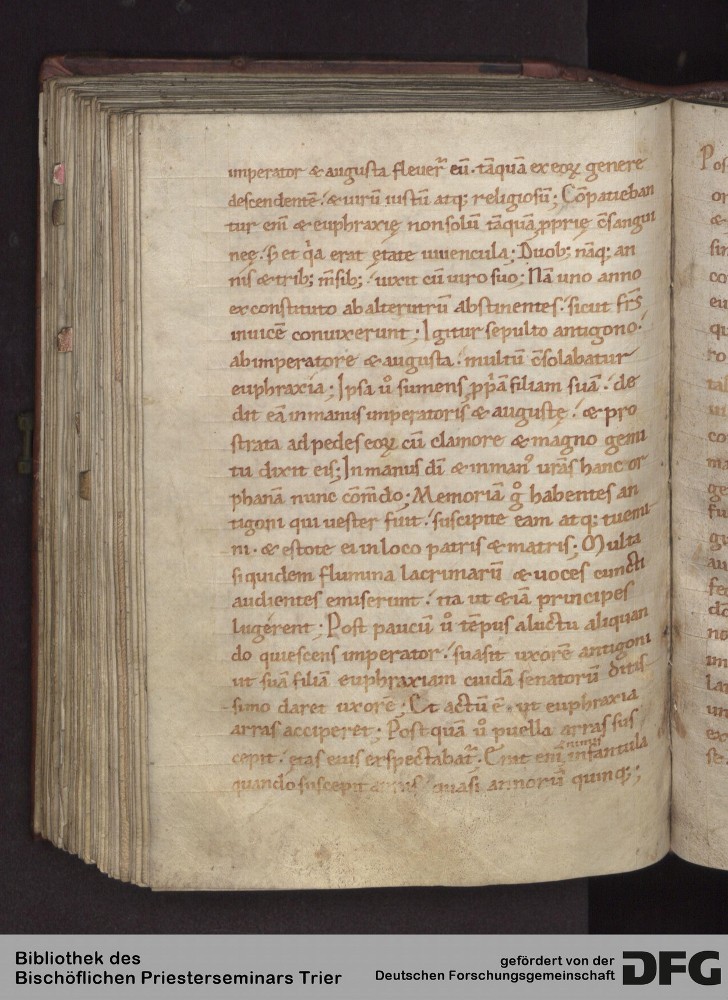 imperator & augusta fleuer̄ eū· tāquā ex eoꝝ genere
descendentē· & uirū iustū atq; religiosū; Cōpatieban
tur eni̅ & euphraxię non solū tāquā ꝓprię c̄sangui
neę· s; et q̇a erat ętate iuuencula; Duob; nāq; an
nis & trib; m̄sib; uixit cū uiro suo; Nā uno anno
ex constituto ab alterutrū abstinentes· sicut fr̄s
inuicē conuixerunt; Igitur sepulto antigono·
ab imperatore & augusta· multū c̄solabatur
euphraxia; Ipsa ů sumens ꝓpȧ filiam suā· de
dit eā in manus imperatoris & augustę· & pro
strata ad pedes eoꝝ cū clamore & magno gemi
tu dixit eis; In manus dī & in man᷒ ur̄as hanc or
phanā nunc cōm̄do; Memoriā g̊ habentes an
tigoni qui uester fuit· suscipite eam atq; tuemi
ni· & estote ei in loco patris & matris; Multa
siquidem flumina lacrimarū & uoces cuncti
audientes emiserunt· ita ut & iā principes
lugerent; Post paucū ů tēpus a luctu aliquan
do quiescens imperator· suasit uxorē antigoni
ut suā filiā euphraxiam cuidā senatorū ditis
simo daret uxorē; Et actū ē· ut euphraxia
arras acciperet; Post quā ů puella arras sus
cepit· ętas eius exspectabat᷑· Erat eni̅ infantula
nimis
quando suscepit arras quasi annorū quinq;;
Pos
or
&
sin
co
eu
qu
ro
tal
co
ma
ge
fu
au
do
no
im
lar
un
ex
Bibliothek des
Bischöflichen Priesterseminars Trier
gefördert von der
Deutschen Forschungsgemeinschaft
DFG